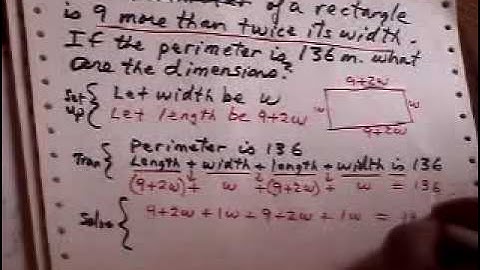 perimeter of a rectangle
is 9 more than twice its width.
If the perimeter is 136 m. what
are the dimensions?
9+2w
Set up { Let width be w
Let length be 9+2w
w
w
9+2w
Perimeter is 136
Tran { Length + width + length + width is 136
(9+2w) + w + (9+2w) + w = 136
Solve { 9+2w + 1w + 9+2w + 1w =